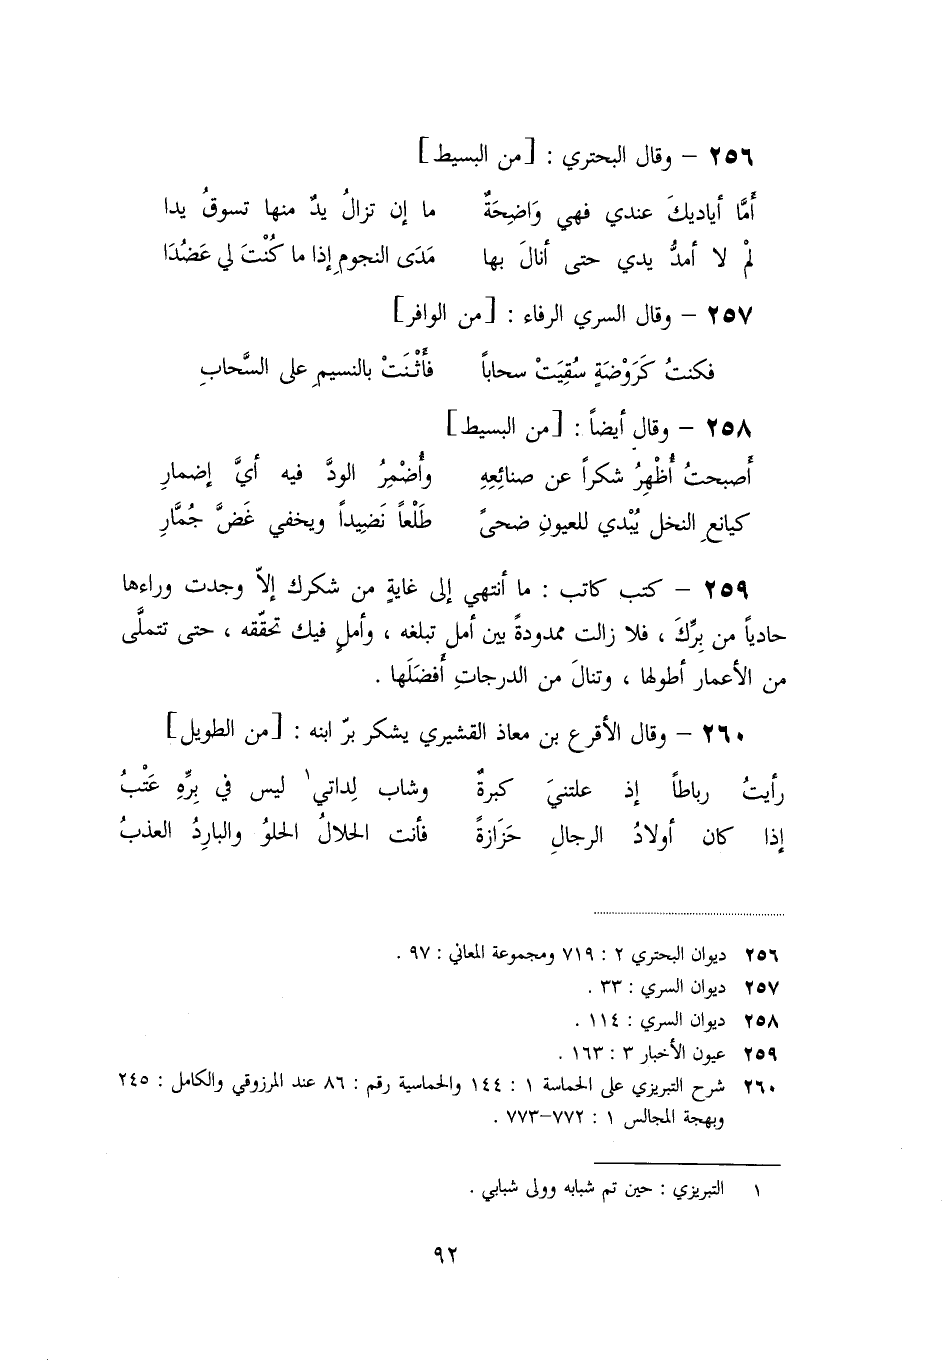 ٢٥٦ – وقال البحتري : [من البسيط]
أَمَّا أياديكَ عندي فهي وَاضِحَةٌ ما إن تزالُ يدٌ منها تسوقُ يدا
لمْ لا أمدُّ يدي حتى أنالَ بها مَدَى النجومِ إذا ما كُنْتَ لي عَضُدَا
٢٥٧ – وقال السري الرفاء : [من الوافر]
فكنتُ كَرَوْضَةٍ سُقِيَتْ سحاباً فأَثْنَتْ بالنسيمِ على السَّحابِ
٢٥٨ – وقال أيضاً : [من البسيط]
أَصبحتُ أُظْهِرُ شكراً عن صنائِعِهِ وأُضْمِرُ الودَّ فيه أيَّ إضمارِ
كيانعِ النخل يُبْدي للعيونِ ضحىً طَلْعاً نَضِيداً ويخفي غَضَّ جُمَّارِ
٢٥٩ – كتب كاتب : ما أنتهي إلى غايةٍ من شكرك إلاّ وجدت وراءها
حادياً من بِرِّكَ ، فلا زالت ممدودةً بين أملٍ تبلغه ، وأملٍ فيك تحقّقه ، حتى تتملَّى
من الأعمار أطولها ، وتنالَ من الدرجاتِ أَفضَلَها .
٢٦٠ – وقال الأقرع بن معاذ القشيري يشكر برّ ابنه : [من الطويل]
رأيتُ رباطاً إذ علتنيَ كبرةٌ وشاب لِداتي١ ليس في بِرِّهِ عَتْبُ
إذا كان أولادُ الرجالِ حَزَازةً فأنت الحلالُ الحلوُ والبارِدُ العذبُ
٢٥٦ ديوان البحتري ٢ : ٧١٩ ومجموعة المعاني : ٩٧ .
٢٥٧ ديوان السري : ٣٣ .
٢٥٨ ديوان السري : ١١٤ .
٢٥٩ عيون الأخبار ٣ : ١٦٣ .
٢٦٠ شرح التبريزي على الحماسة ١ : ١٤٤ والحماسية رقم : ٨٦ عند المرزوقي والكامل : ٢٤٥
وبهجة المجالس ١ : ٧٧٢–٧٧٣ .
١ التبريزي : حين تم شبابه وولى شبابي .
٩٢